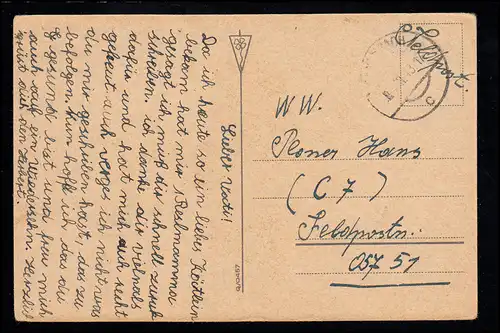 Lieber Vati!
Da ich heute so ein liebes Kärtlein
bekam hat mir
gesagt ich muß dir schnell zurück
schreiben. ich danke dir vielmals
dafür und hat mich sehr
gefreut auch verges ich nicht was
du mir geschrieben hast, das zu
befolgen. Nun hoffe ich, das du
gesund bist und freu mich
auch auf ein Wiedersehn. Herzlich
grüst dich dein
Feldpost.
c
W.W.
Hans
(C 7)
Feldpostn.
05751